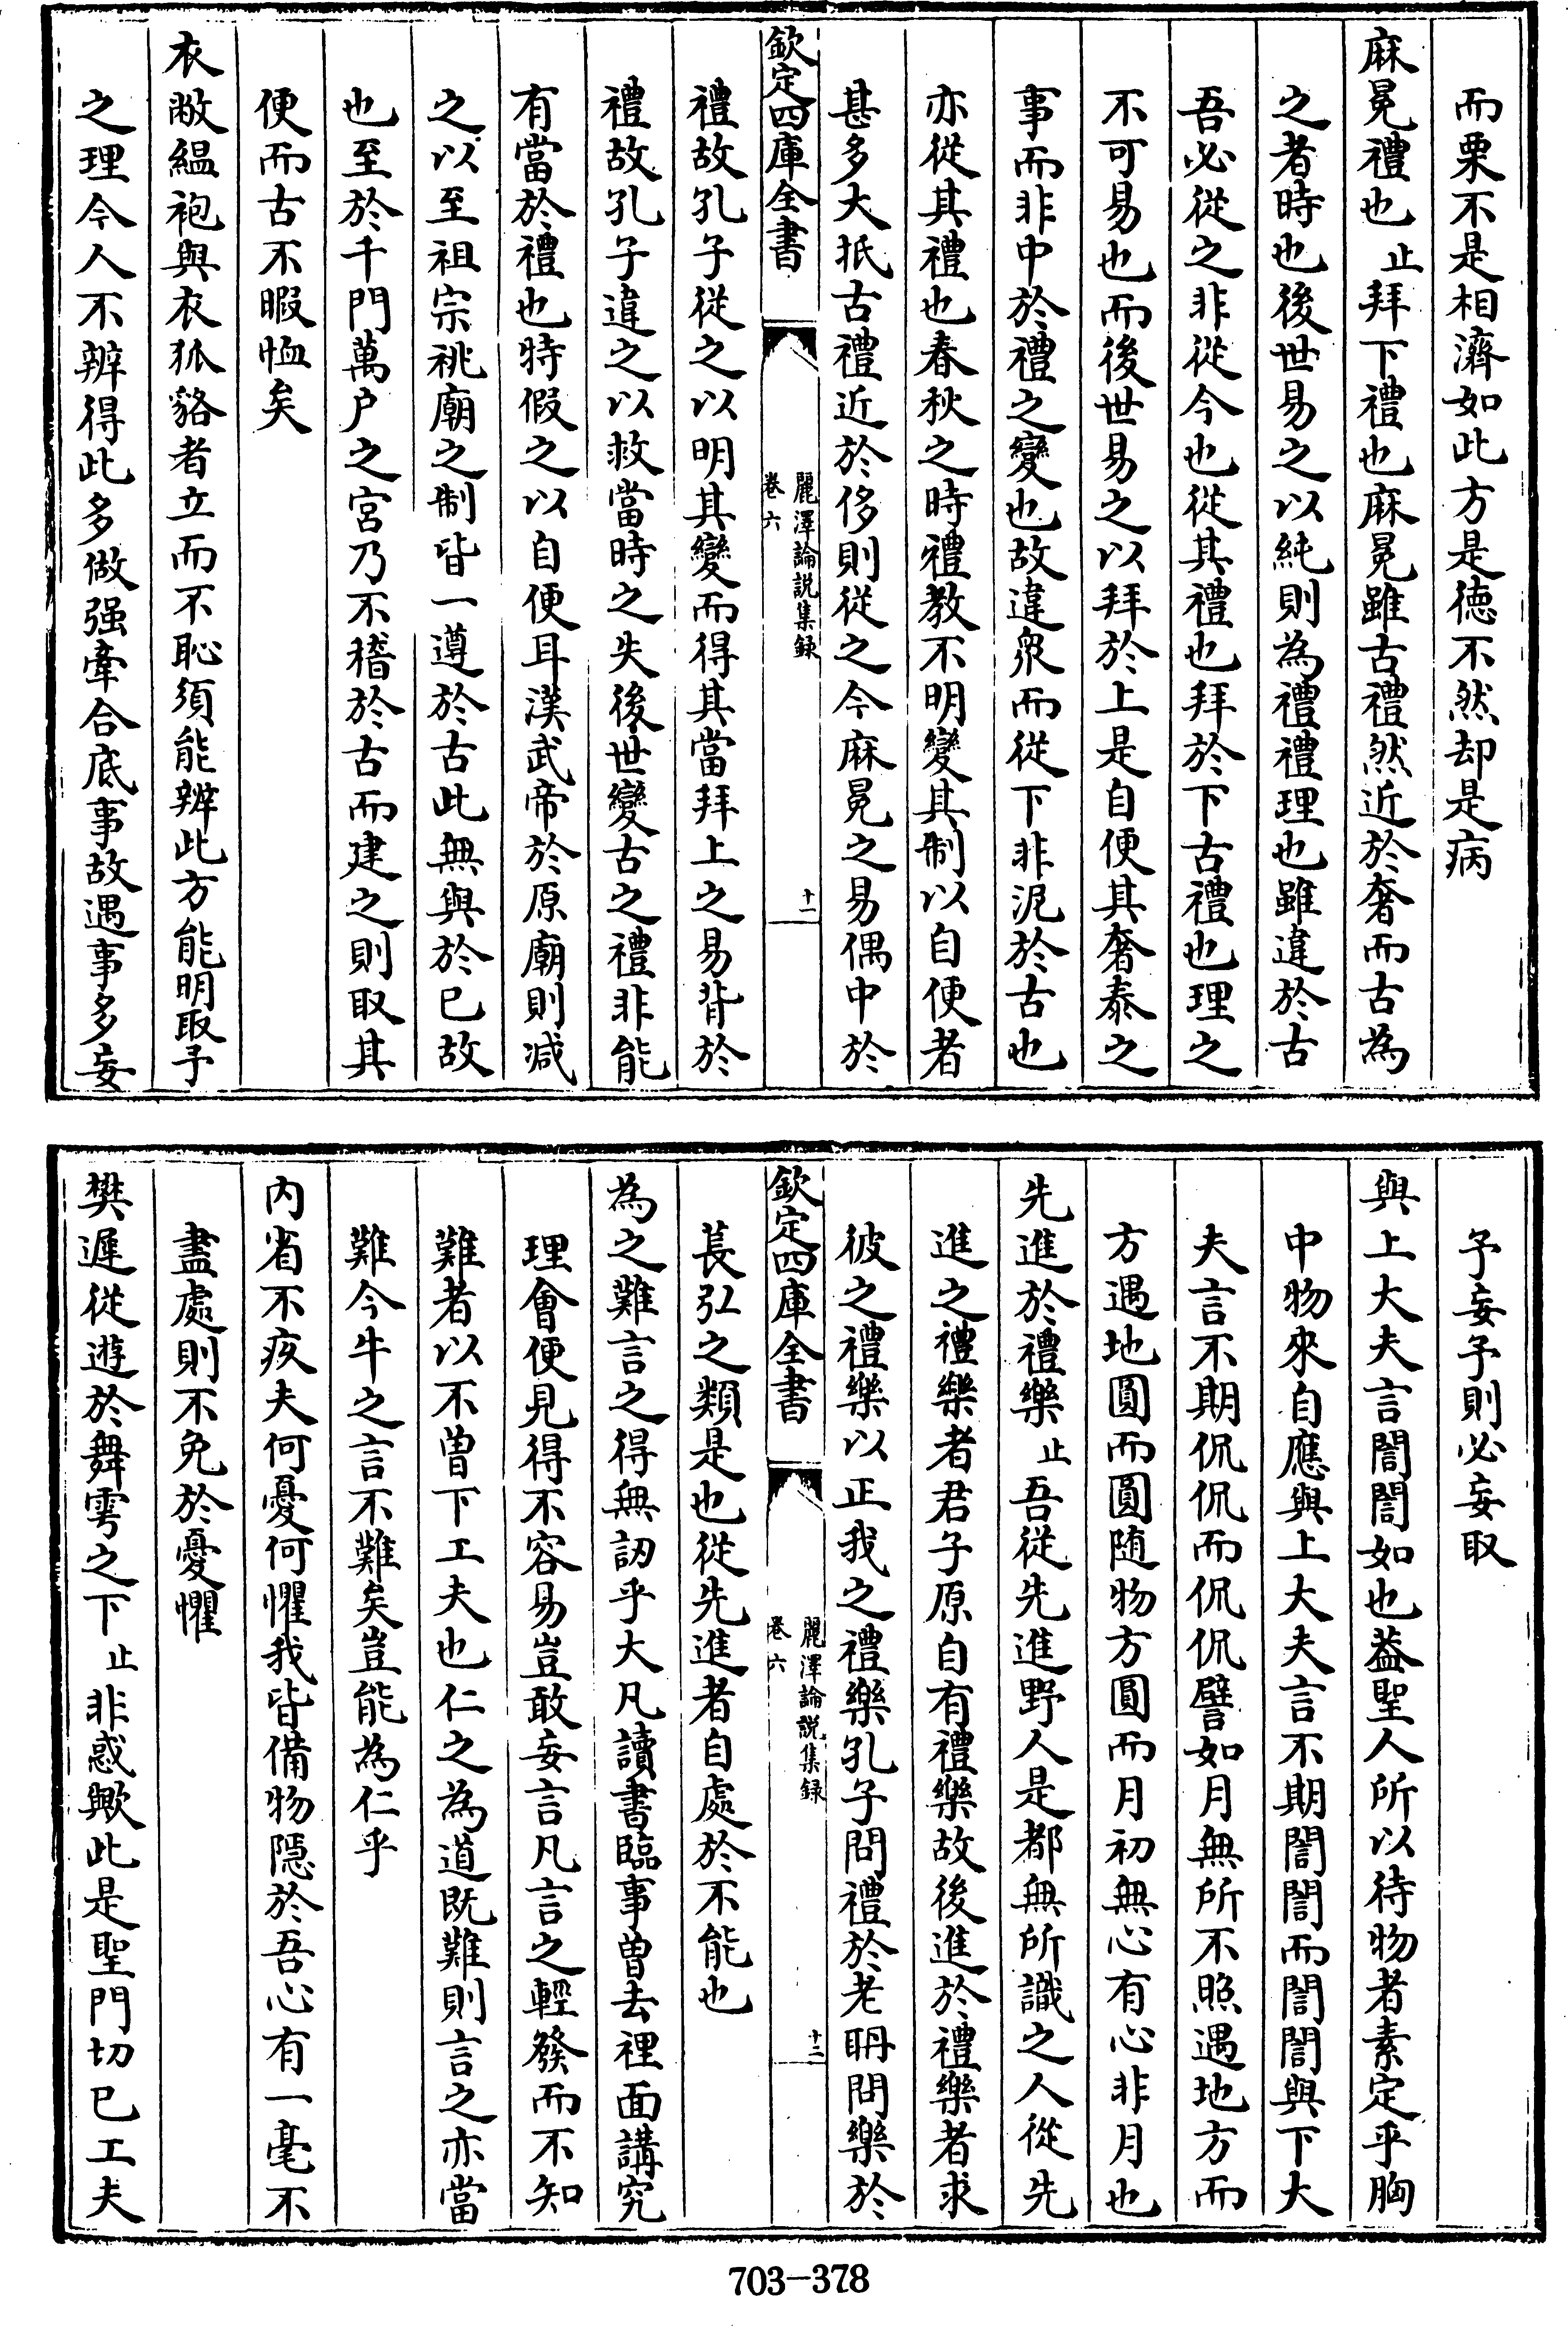 而栗不是相濟如此方是德不然却是病
麻冕禮也止拜下禮也麻冕雖古禮然近於奢而古為
之者時也後世易之以純則為禮禮理也雖違於古
吾必從之非從今也從其禮也拜於下古禮也理之
不可易也而後世易之以拜於上是自便其奢泰之
事而非中於禮之變也故違衆而從下非泥於古也
亦從其禮也春秋之時禮教不明變其制以自便者
甚多大抵古禮近於侈則從之今麻冕之易偶中於
欽定四庫全書
麗澤論說集録
卷六
十一
禮故孔子從之以明其變而得其當拜上之易背於
禮故孔子違之以救當時之失後世變古之禮非能
有當於禮也特假之以自便耳漢武帝於原廟則减
之以至祖宗祧廟之制皆一遵於古此無與於已故
也至於千門萬户之宮乃不稽於古而建之則取其
便而古不暇恤矣
衣敝緼袍與衣狐貉者立而不恥須能辨此方能明取予
之理今人不辨得此多做强牽合底事故遇事多妄
予妄予則必妄取
與上大夫言誾誾如也葢聖人所以待物者素定乎胸
中物來自應與上大夫言不期誾誾而誾誾與下大
夫言不期侃侃而侃侃譬如月無所不照遇地方而
方遇地圓而圓随物方圓而月初無心有心非月也
先進於禮樂止吾從先進野人是都無所識之人從先
進之禮樂者君子原自有禮樂故後進於禮樂者求
彼之禮樂以正我之禮樂孔子問禮於老聃問樂於
欽定四庫全書
麗澤論說集録
卷六
十二
萇弘之類是也從先進者自處於不能也
為之難言之得無訒乎大凡讀書臨事曽去裡面講究
理會便見得不容易豈敢妄言凡言之輕發而不知
難者以不曽下工夫也仁之為道既難則言之亦當
難今牛之言不難矣豈能為仁乎
内省不疚夫何憂何懼我皆備物隱於吾心有一毫不
盡處則不免於憂懼
樊遲從遊於舞雩之下止非惑歟此是聖門切已工夫
703-378